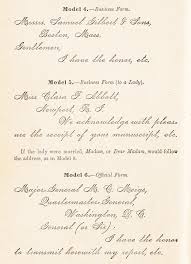 Model 4.—Business Form.
Messrs. Samuel Gilbert & Sons,
Boston, Mass.
Gentlemen,
I have the honor, etc.
Model 5.—Business Form (to a Lady).
Miss Clara F. Abbott,
Newport, R. I.
We acknowledge with pleas-
ure the receipt of your manuscript, etc.
If the lady were married, Madam, or Dear Madam, would follow
the address, as in Model 8.
Model 6.—Official Form.
Major General M. C. Meigs,
Quartermaster General,
Washington, D. C.
General (or Sir),
I have the honor
to transmit herewith my report, etc.